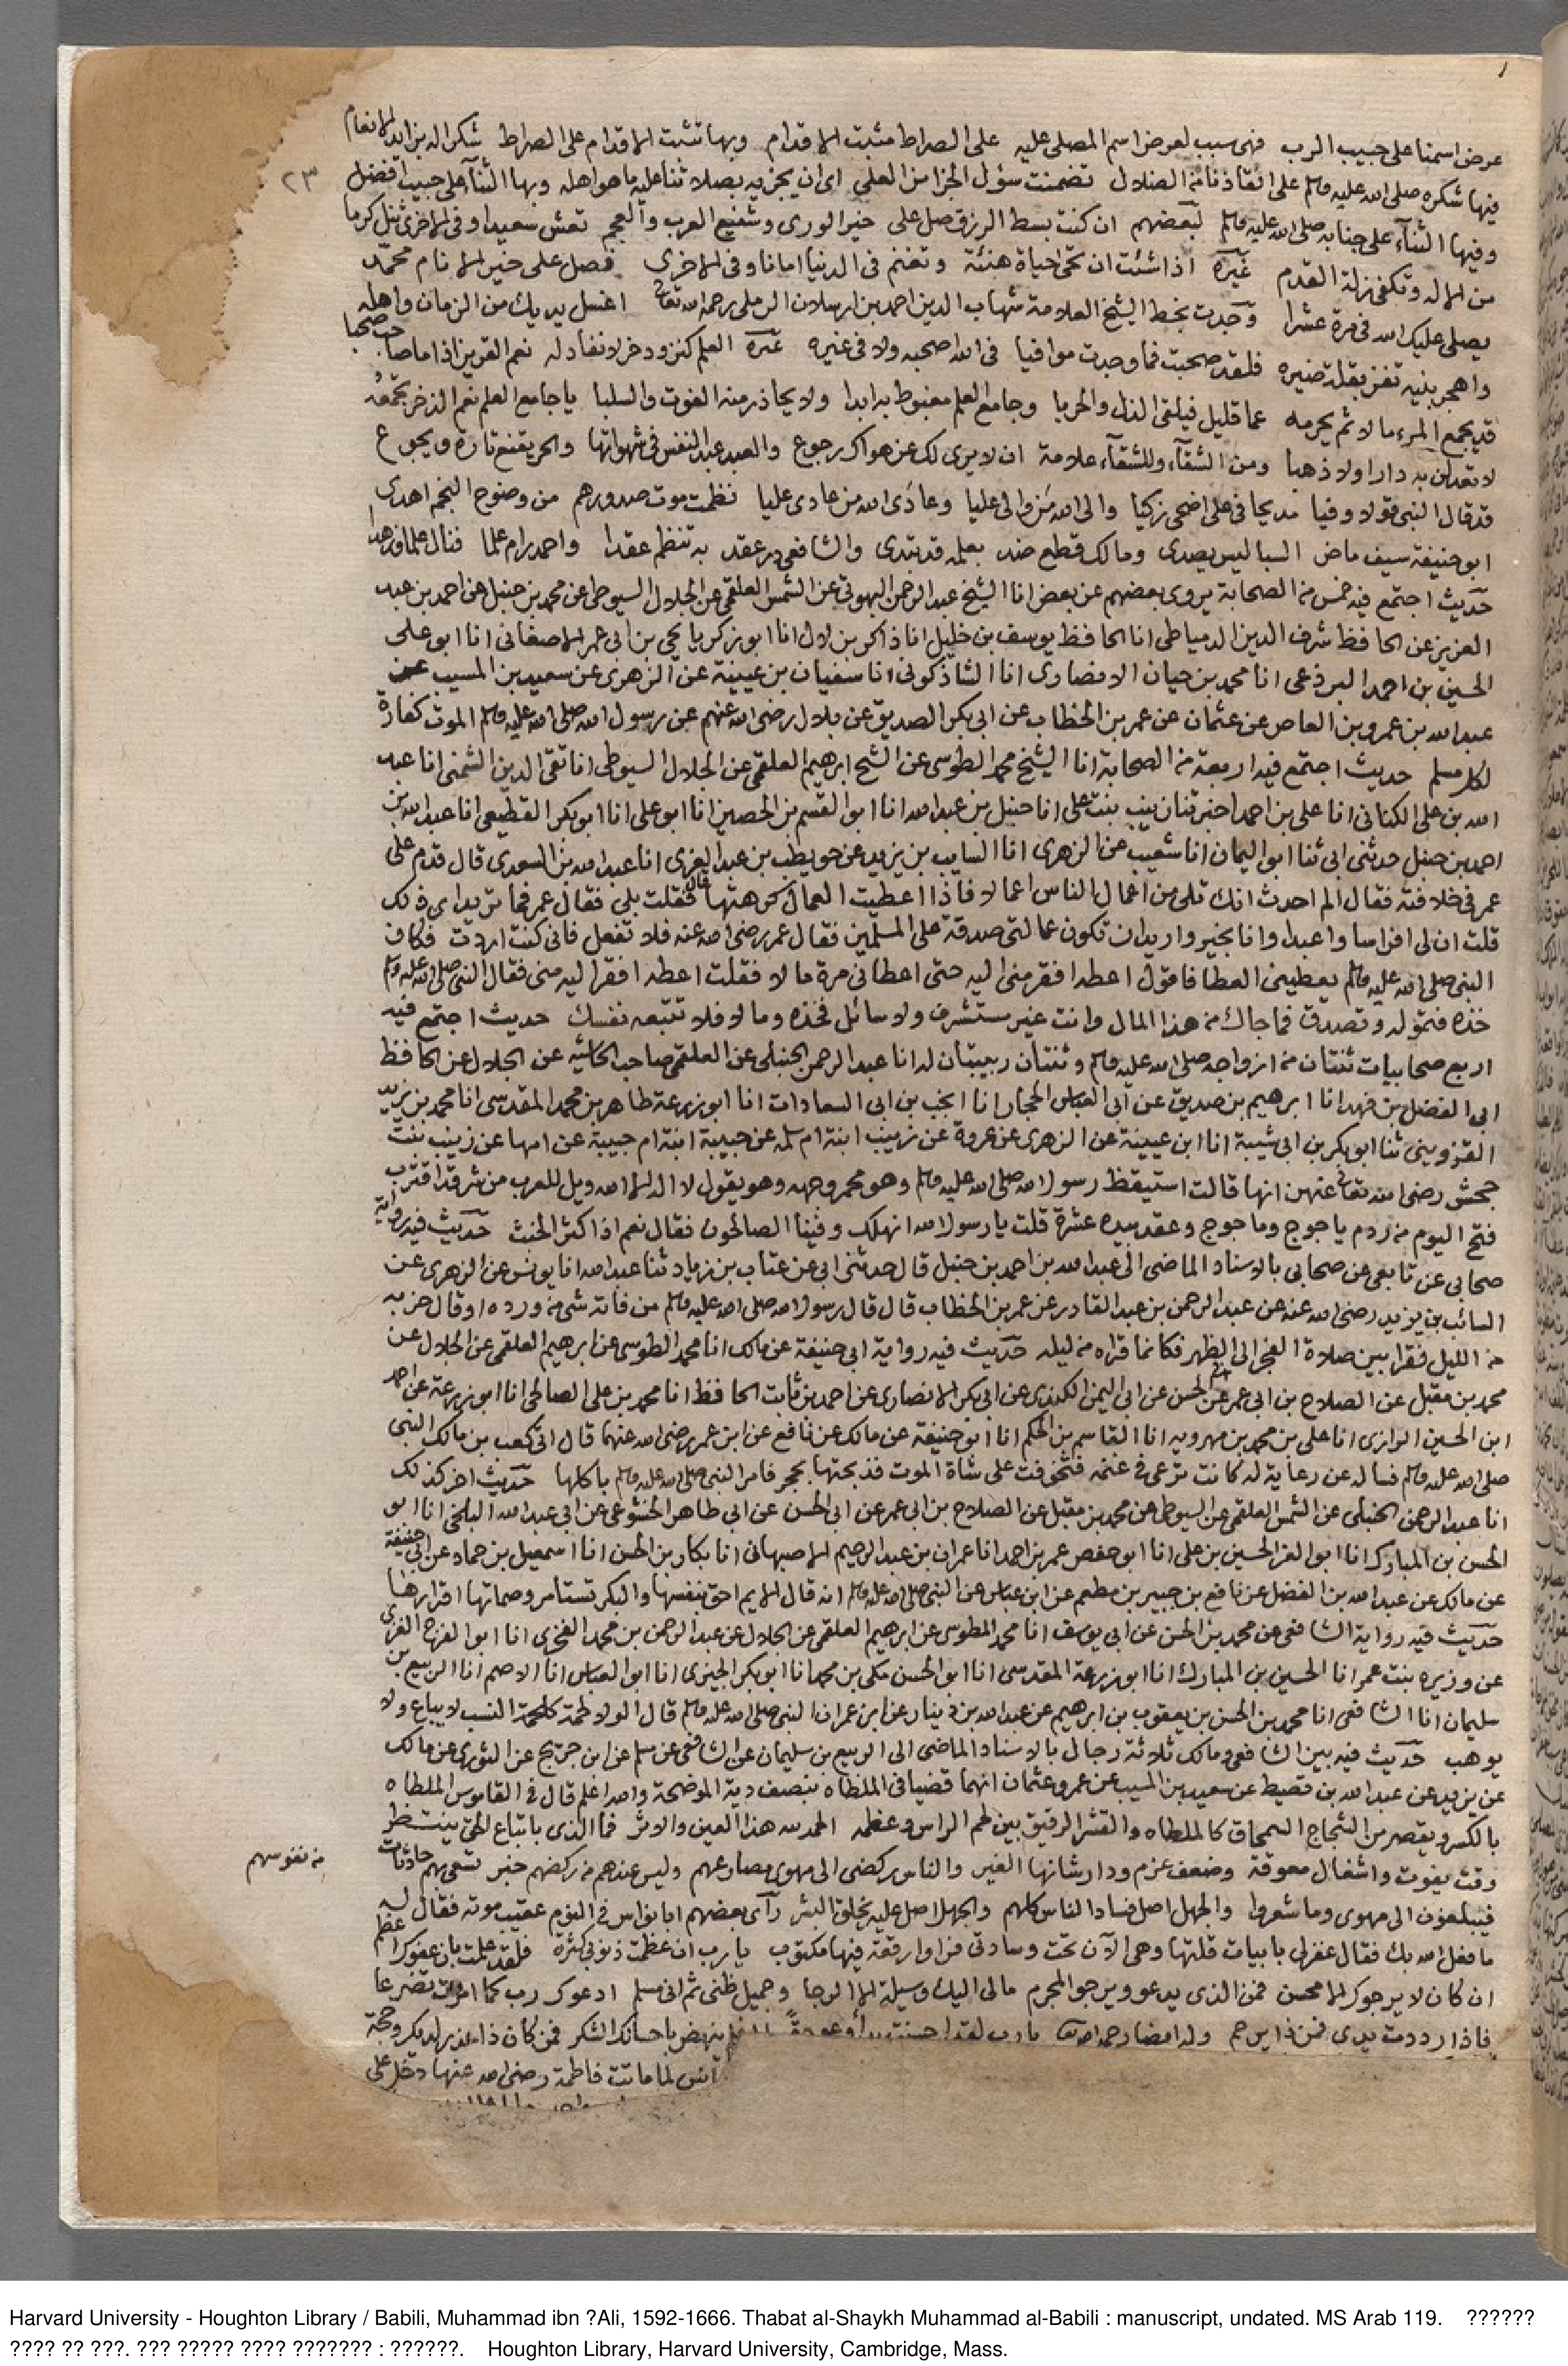 عرض اسمنا على حبيب الرب فهى سبب لعرض اسم المصلى عليه على الصراط مثبت الاقدام وبها تثبت الاقدام على الصراط شكر الله بزائد الانعام
٢٣
فيها شكره صلى الله عليه وسلم على انقاذنا من الضلال تضمنت سؤل الجزا من العلى اى ان يجزيه بصلا تنا عليه ما هو اهله وبها الثناء على حبيب افضل
وفيها الثناء على جنابه صلى الله عليه وسلم لبعضهم ان كنت بسط الرزق صل على خير الورى وشفيع العرب والعجم تعش سعيدا وفى الاخرى تنل كرما
من الاله وتكفى زلة القدم غيره اذا شئت ان تحيى حياة هنئة وتغنم فى الدنيا امانا وفى الاخرى فصل على خير الانام محمد
يصلى عليك الله فى مرة عشرا وجدت بخط الشيخ العلامة شهاب الدين احمد بن ارسلان الرملى رحمه الله تعالى اغسل يديك من الزمان واهله
واهجر بنيه تفز بقلة ضيره فلقد صحبت فما وجدت موافيا فى الله اصحبه ولا فى غيره غيره العلم كنز وذخر لا نفاد له نعم القرين اذا ما صاحب صحبا
قد يجمع المرء مالا ثم يحرمه عما قليل فيلقى الذل والحربا وجامع العلم مغبوط به ابدا ولا يحاذر منه الفوت والسلبا يا جامع العلم نعم الذخر تجمعه
لا تعدلن به دارا ولا ذهبا ومن الشقاء وللشقاء علامة ان لا يرى لك عن هواك رجوع والعبد عبد النفس فى شهواتها والحر يقنع تارة ويجوع
قد قال النبى قولا وفيا مديحا فى على اضحى زكيا والى الله من والى عليا وعادى الله من عادى عليا نظمت موت صدورهم من وضوح النجم اهدى
ابو حنيفة سيف ماض السبا ليس يصدى ومالك قطع ضد بعلمه قد تبدى والشافعى در عقد به تنظم عقدا واحمد رام علما فنال علما وزهدا
حديث اجتمع فيه خمس من الصحابة يروى بعضهم عن بعض انا الشيخ عبد الرحمن البهوتى عن الشمس العلقمى عن الجلال السيوطى عن محمد بن حنبل عن احمد بن عبد
العزيز عن الحافظ شرف الدين الدمياطى انا الحافظ يوسف بن خليل انا ذاكر بن لال انا ابو زكريا يحيى بن ابى عمر الاصفانى انا ابو على
الحسين بن احمد البرذعى انا محمد بن حيان الانصارى انا الشاذكونى انا سفيان بن عيينة عن الزهرى عن سعيد بن المسيب عن
عبد الله بن عمرو بن العاص عن عثمان عن عمر بن الخطاب عن ابى بكر الصديق عن بلال رضى الله عنهم عن رسول الله صلى الله عليه وسلم الموت كفارة
لكل مسلم حديث اجتمع فيه اربعة من الصحابة انا الشيخ محمد الطوسى عن الشيخ ابرهيم العلقمى عن الجلال السيوطى انا تقى الدين الشمنى انا عبد
الله بن على الكنانى انا على بن احمد اخبرتنا زينب بنت على انا حنبل بن عبد الله انا ابو القسم بن الحصين انا ابو على انا ابو بكر القطيعى انا عبد الله بن
احمد بن حنبل حدثنى ابى ثنا ابو اليمان انا شعيب عن الزهرى انا السايب بن يزيد عن حويطب بن عبد العزى انا عبد الله بن السعدى قال قدم على
عمر فى خلافته فقال الم احدث انك تلى من اعمال الناس اعمالا فاذا اعطيت العمالة كرهتها قال فقلت بلى فقال عمر فما تريد اى ذلك
قلت ان لى افراسا واعبدا وانا بخير واريد ان تكون عمالتى صدقة على المسلمين فقال عمر رضى الله عنه فلا تفعل فانى كنت اردت فكان
النبى صلى الله عليه وسلم يعطينى العطا فاقول اعطه افقر منى اليه حتى اعطانى مرة مالا فقلت اعطه افقر اليه منى فقال النبى صلى الله عليه وسلم
خذه فتموله وتصدق فما جاك من هذا المال وانت غير مستشرف ولا سائل فخذه وما لا فلا تتبعه نفسك حديث اجتمع فيه
اربع صحابيات ثنتان من ازواجه صلى الله عليه وسلم وثنتان ربيبتان له انا عبد الرحمن الحنبلى عن العلقمى صاحب الحاشيه عن الجلال عن الحافظ
ابى الفضل بن فهد انا ابرهيم بن صديق عن ابى العباس الحجار انا انجب بن ابى السعادات انا ابو زرعة طاهر بن محمد المقدسى انا محمد بن يزيد
القزوينى ثنا ابو بكر بن ابى شيبة انا ابن عيينة عن الزهرى عن عروة عن زينب ابنة ام سلمه عن حبيبة ابنة ام حبيبة عن امها عن زينب بنت
جحش رضى الله تعالى عنهن انها قالت استيقظ رسول الله صلى الله عليه وسلم وهو محمر وجهه وهو يقول لا اله الا الله ويل للعرب من شر قد اقترب
فتح اليوم من ردم ياجوج وماجوج وعقد بيده عشرة قلت يا رسول الله انهلك وفينا الصالحون فقال نعم اذا كثر الخبث حديث فيه رواية
صحابى عن تابعى عن صحابى بالاسناد الماضى الى عبد الله بن احمد بن حنبل قال حدثنى ابى عن عتاب بن زياد ثنا عبد الله انا يونس عن الزهرى عن
السائب بن يزيد رضى الله عنه عن عبد الرحمن بن عبد القادر عن عمر بن الخطاب قال قال رسول الله صلى الله عليه وسلم من فاته شى من ورده او قال حزبه
من الليل فقرا بين صلاة الفجر الى الظهر فكانما قراه من ليله حديث فيه رواية ابى حنيفة عن مالك انا محمد الطوسى عن ابرهيم العلقمى عن الجلال عن
محمد بن مقبل عن الصلاح بن ابى عمر عن ابى الحسن عن ابى اليمن الكندى عن ابى بكر الانصارى عن احمد بن ثابت الحافظ انا محمد بن على الصالحى انا ابو زرعة عن احمد
ابن الحسين الرازى انا على بن محمد بن مهرويه انا القاسم بن الحكم انا ابو حنيفة عن مالك عن نافع عن ابن عمر رضى الله عنهما قال اتى كعب بن مالك النبى
صلى الله عليه وسلم فساله عن رعاية له كانت ترعى فى غنمه فتخوفت على شاة الموت فذبحتها بحجر فامر النبى صلى الله عليه وسلم باكلها حديث اخر كذلك
انا عبد الرحمن الحنبلى عن الشمس العلقمى عن السيوطى عن محمد بن مقبل عن الصلاح بن ابى عمر عن ابى الحسن عن ابى طاهر الخشوعى عن ابى عبد الله البلخى انا ابو
الحسن بن المبارك انا ابو العز الحسين بن على انا ابو حفص عمر بن احمد انا عمران بن عبد الرحيم الاصبهانى انا بكار بن الحسن انا اسمعيل بن حماد عن ابى حنيفة
عن مالك عن عبد الله بن الفضل عن نافع بن جبير بن مطعم عن ابن عباس عن النبى صلى الله عليه وسلم انه قال الايم احق بنفسها والبكر تستامر وصماتها اقرارها
حديث فيه رواية الشافعى عن محمد بن الحسن عن ابى يوسف انا محمد الطوسى عن ابرهيم العلقمى عن الجلال عن عبد الرحمن بن محمد الفخرى انا ابو الفرج الغزى
عن وزيره بنت عمر انا الحسين بن المبارك انا ابو زرعة المقدسى انا ابو الحسن مكى بن محمد انا ابو بكر الحيرى انا ابو العباس انا الاصم انا الربيع بن
سليمان انا الشافعى انا محمد بن الحسن بن يعقوب بن ابرهيم عن عبد الله بن دينار عن ابن عمر ان النبى صلى الله عليه وسلم قال الولا لحمة كلحمة النسب لا يباع ولا
يوهب حديث فيه بين الشافعى ومالك ثلاثة رجال بالاسناد الماضى الى الربيع بن سليمان عن الشافعى عن مسلم عن ابن جريج عن الثورى عن مالك
عن يزيد عن عبد الله بن قصيط عن سعيد بن المسيب عن عمر وعثمان انهما قضيا فى الملطاه بنصف دية الموضحة والله اعلم قال فى القاموس الملطاه
بالكسر ويقصر من الشجاج السمحاق كالملطاه والقشر الرقيق بين لحم الراس وعظمه الحمد لله هذا العين والاثر فما الذى باتباع الحق ينتظر
وقت يفوت واشغال معوقة وضعف عزم ودار شانها الغير والناس ركضى الى مهوى مصارعهم وليس عندهم من ركضهم خبر تسعى بهم حادثات
من نفوسهم
فيبلغون الى مهوى وما شعروا والجهل اصل فساد الناس كلهم والجهل اصل عليه يخلق البشر رآى بعضهم ابا نواس فى النوم عقيب موته فقال له
ما فعل الله بك فقال غفر لى بابيات قلتها وهى الآن تحت وسادتى فراوا رقعة فيها مكتوب يا رب ان عظمت ذنوبى كثرة فلقد علمت بان عفوك اعظم
ان كان لا يرجوك الا محسن فمن الذى يدعو ويرجو المجرم مالى اليك وسيلة الا الرجا وجميل ظنى ثم انى مسلم ادعوك رب كما امرت تضرعا
فاذا رددت يدى فمن ذا يرحم وله ايضا رحمه الله يا رب لقد احسنت ينهض باحسانك الشكر فمن كان ذا عذر لديك وحجة
انس لما ماتت فاطمة رضى الله عنها دخل على